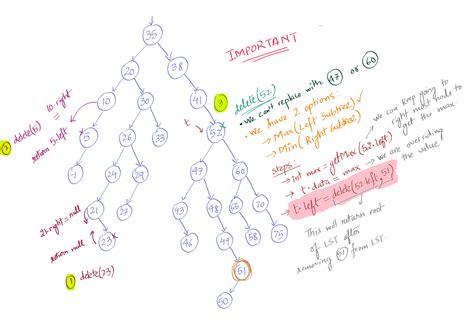 IMPORTANT
35
20
38
10
30
41
3
delete(52)
• We can't replace with 47 or 60
• We have 2 options:
→ Max(Left Subtree)
→ Min(Right Subtree)
we can keep going to
right most node to
get the max.
steps:
→ int max = getMax(52.left)
→ t.data = max → we are overriding
the value
→ t.left = delete(52.left, 51)
This will return root
of LST after
removing 51 from LST.
10.right
delete(5)
return 5.left
t
5
26
33
52
-1
24
29
47
60
21.right = null
21
43
48
55
70
return null
23
46
49
65
58
75
1
delete(23)
51
50